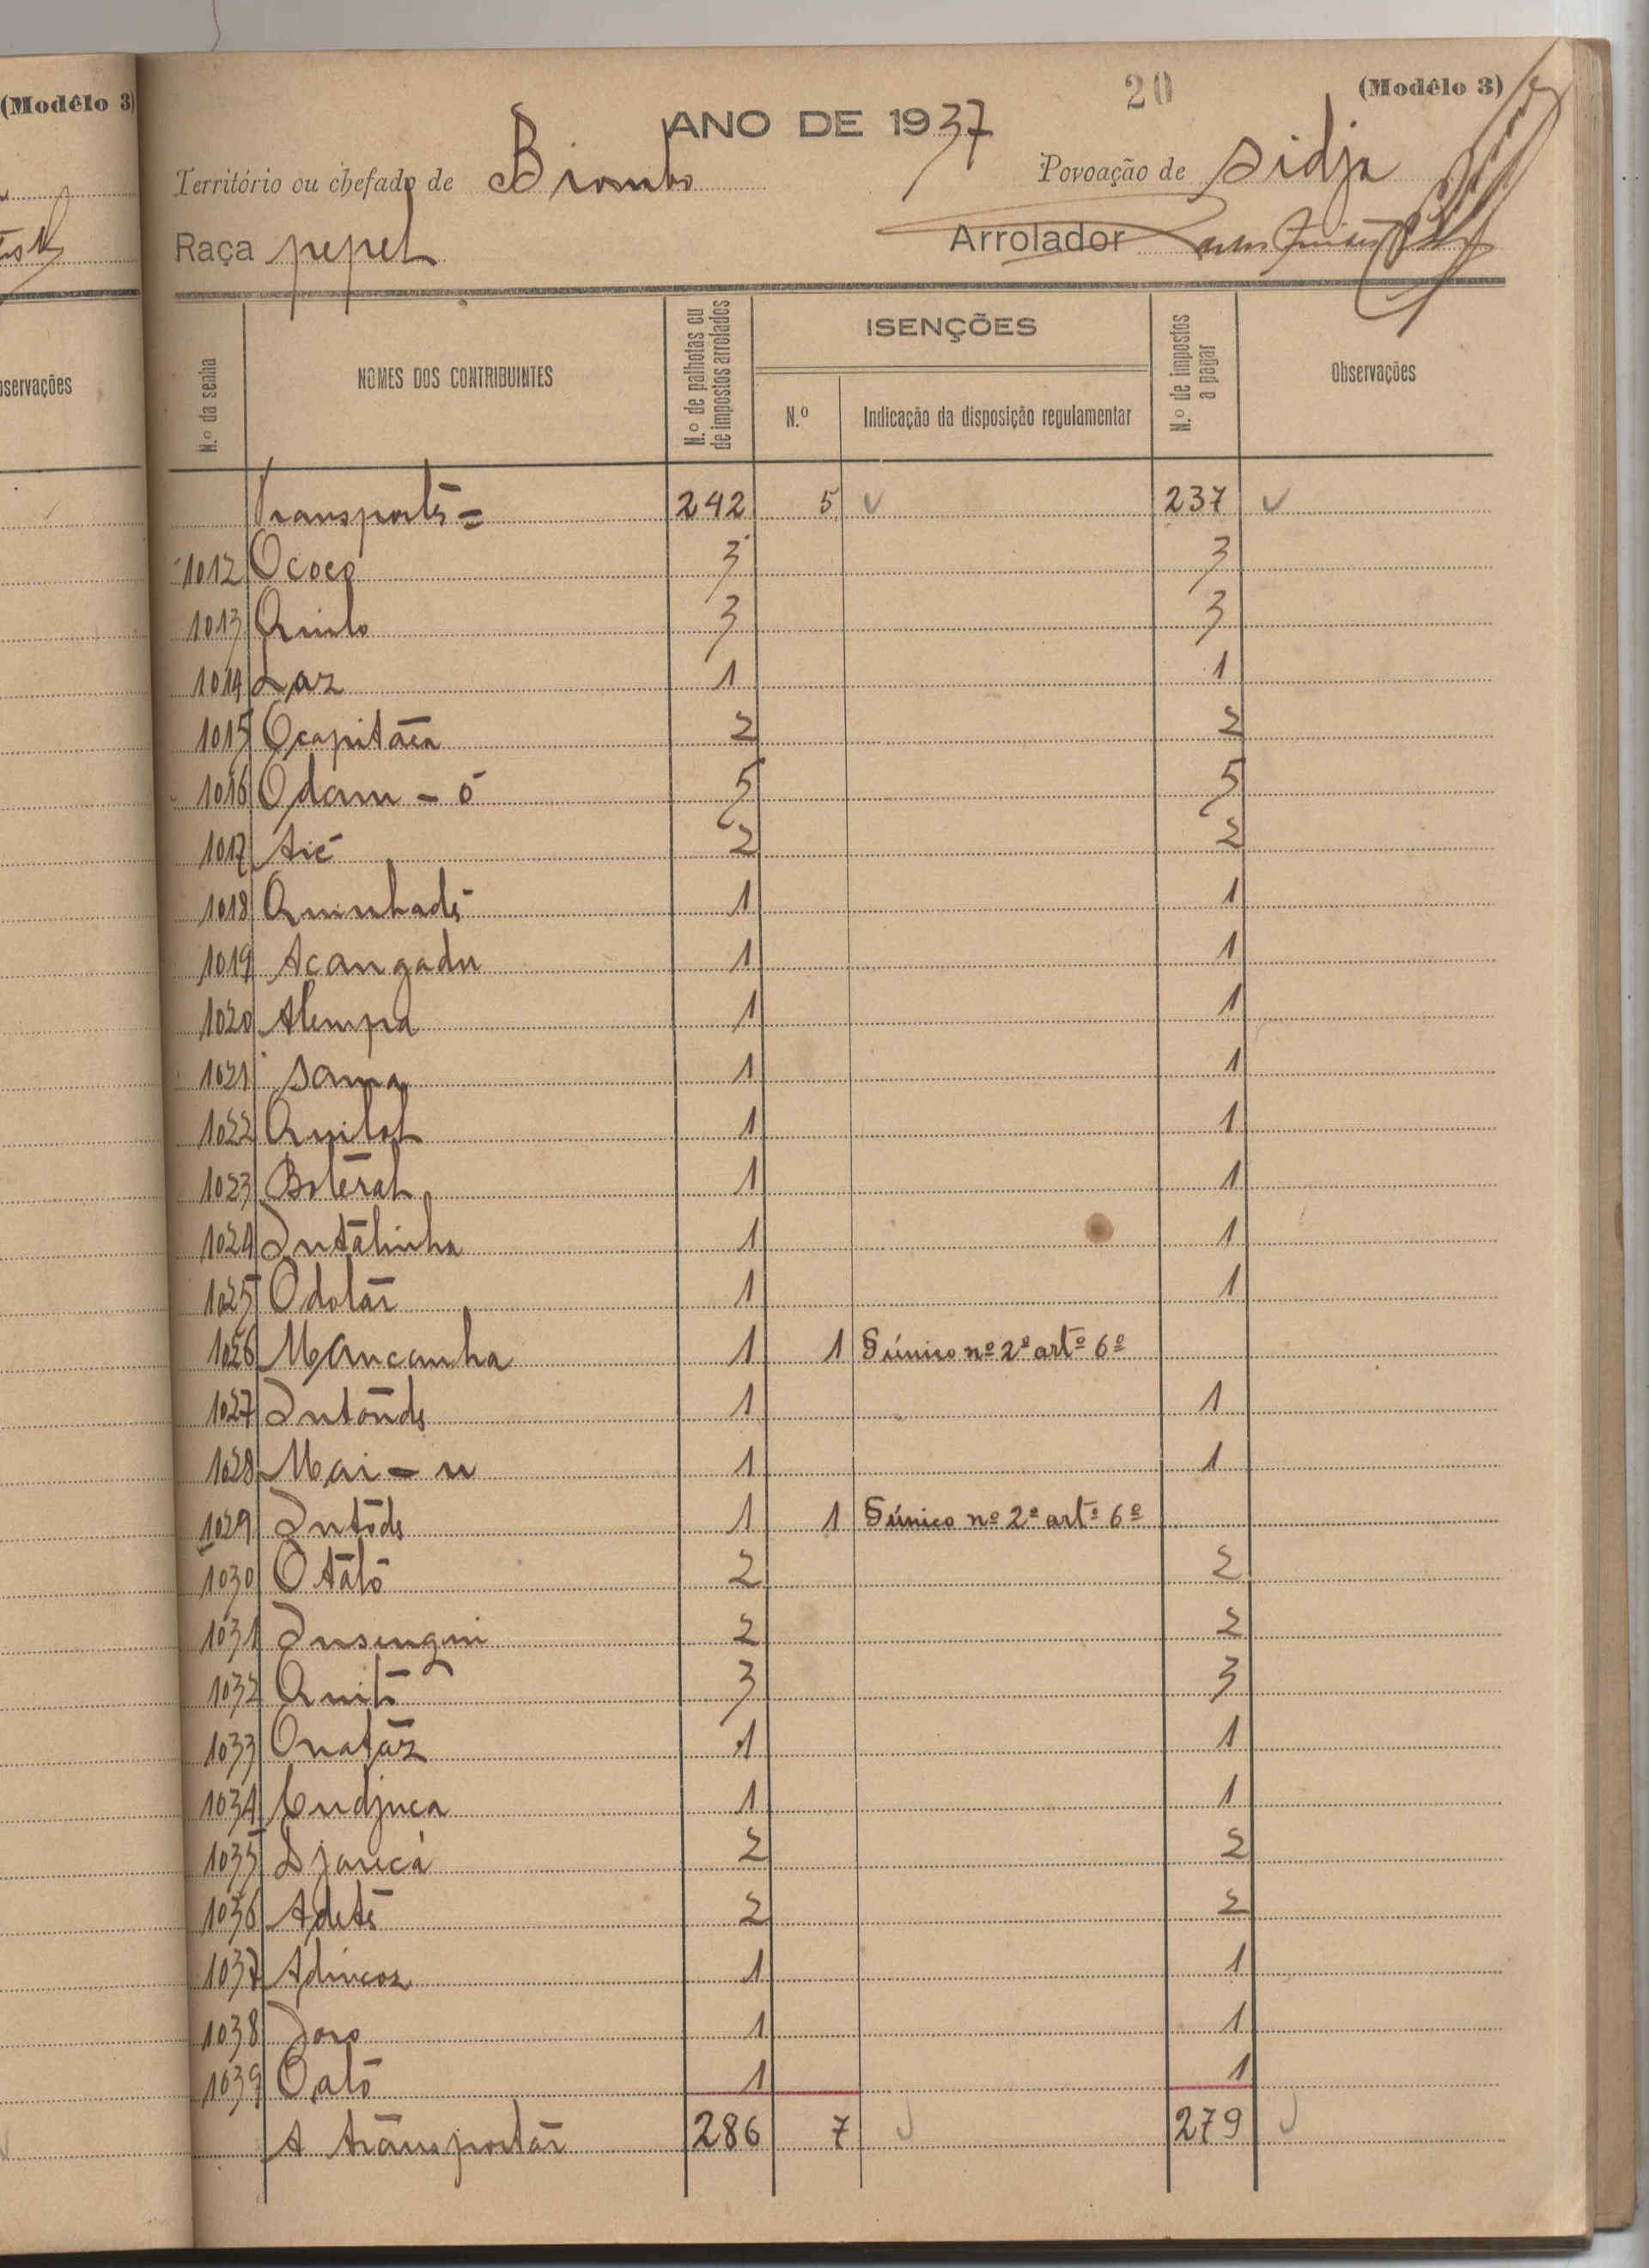 (Modêlo 3)
20
(Modêlo 3)
ANO DE 1937
Território ou chefado de Biombo
Povoação de Sidja
Raça pepel
Arrolador
Observações
N.º da senha
NOMES DOS CONTRIBUINTES
N.º de palhotas ou de impostos arrolados
ISENÇÕES
N.º
Indicação da disposição regulamentar
N.º de impostos a pagar
Observações
Transporte = 242 5 237
1012 Ococo 3 3
1013 Quilo 3 3
1014 Laz 1 1
1015 Ocapitāca 2 2
1016 Odam - ó 5 5
1017 Aié 2 2
1018 Quinhadé 1 1
1019 Acangadu 1 1
1020 Alempa 1 1
1021 Sama 1 1
1022 Quilol 1 1
1023 Boteral 1 1
1024 Intalinha 1 1
1025 Odolar 1 1
1026 Mancanha 1 1 § único nº 2º artº 6º
1027 Intonde 1 1
1028 Mai - u 1 1
1029 Intode 1 1 § único nº 2º artº 6º
1030 Otató 2 2
1031 Insengui 2 2
1032 Quité 3 3
1033 Onataz 1 1
1034 Cudjuca 1 1
1035 Djarica 2 2
1036 Adeté 2 2
1037 Adincoz 1 1
1038 1 1
1039 1 1
A transportar 286 7 279